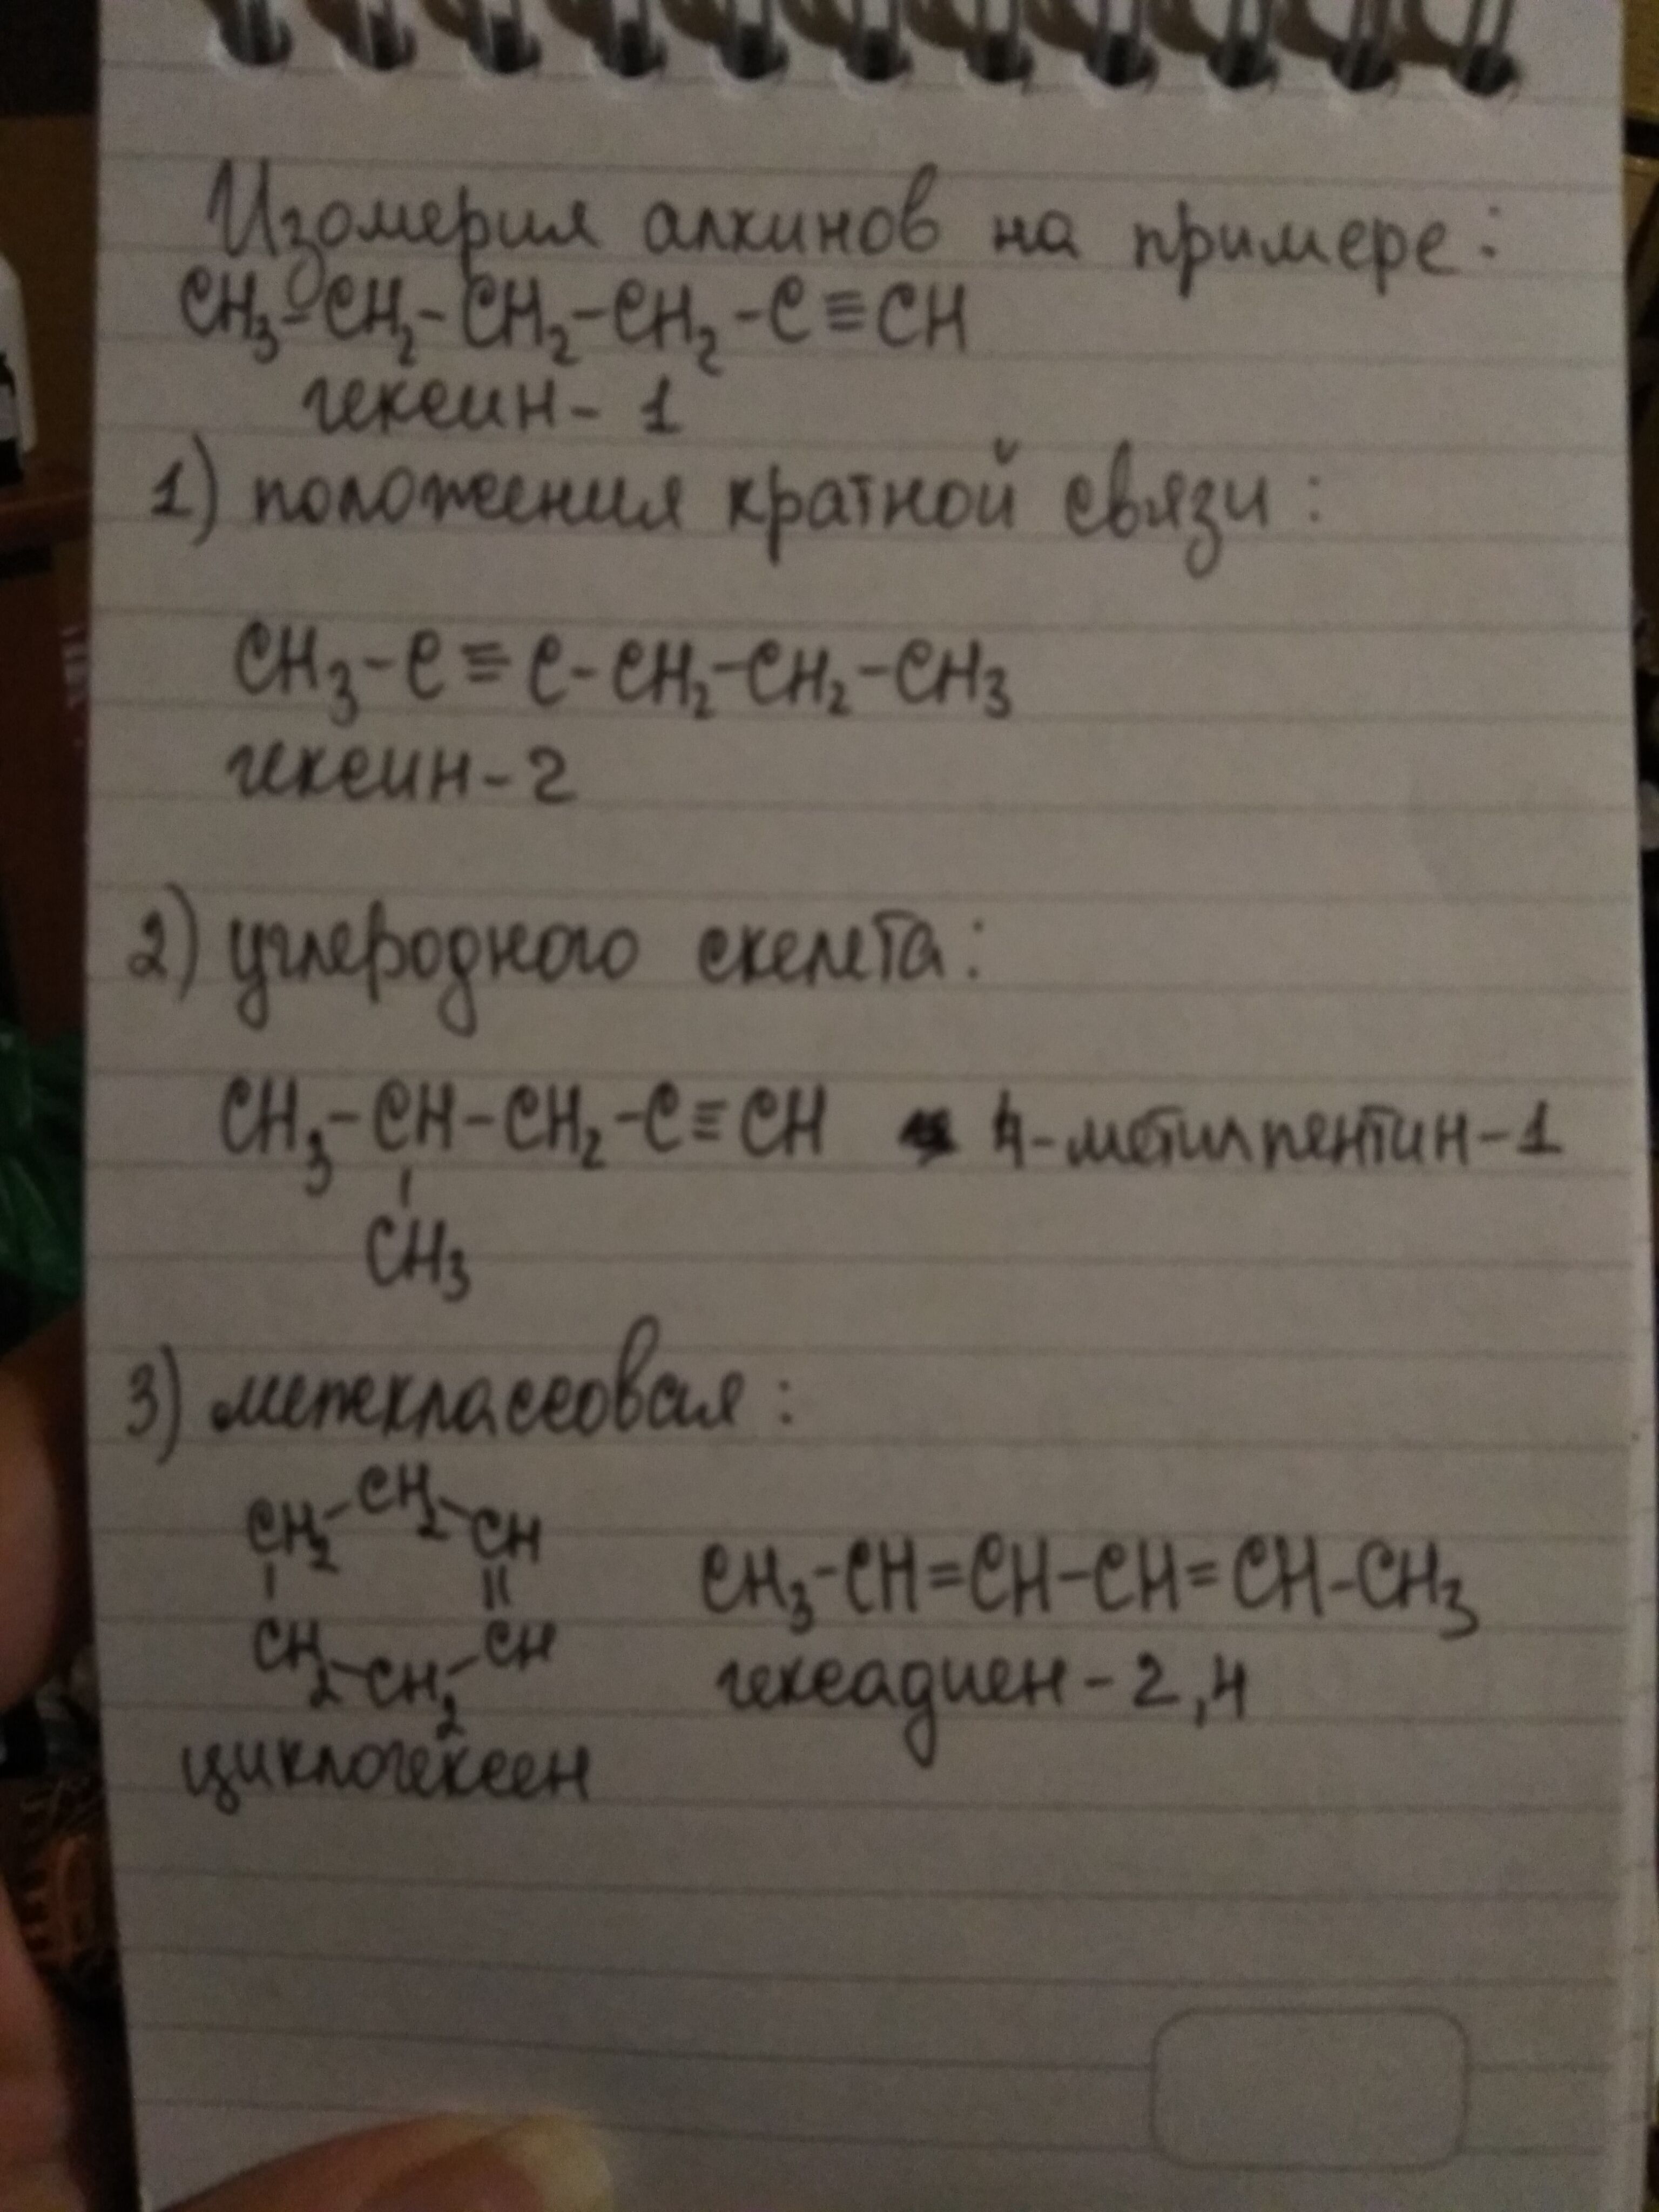 Изомерия алкинов на примере:
CH₃-CH₂-CH₂-CH₂-C≡CH
гексин-1
1) положения кратной связи:
CH₃-C≡C-CH₂-CH₂-CH₃
гексин-2
2) углеродного скелета:
CH₃-CH-CH₂-C≡CH 4-метилпентин-1
CH₃
3) межклассовая:
CH₂-CH₂-CH
CH₃-CH=CH-CH=CH-CH₃
CH₂-CH₂-CH
гексадиен-2,4
циклогексен